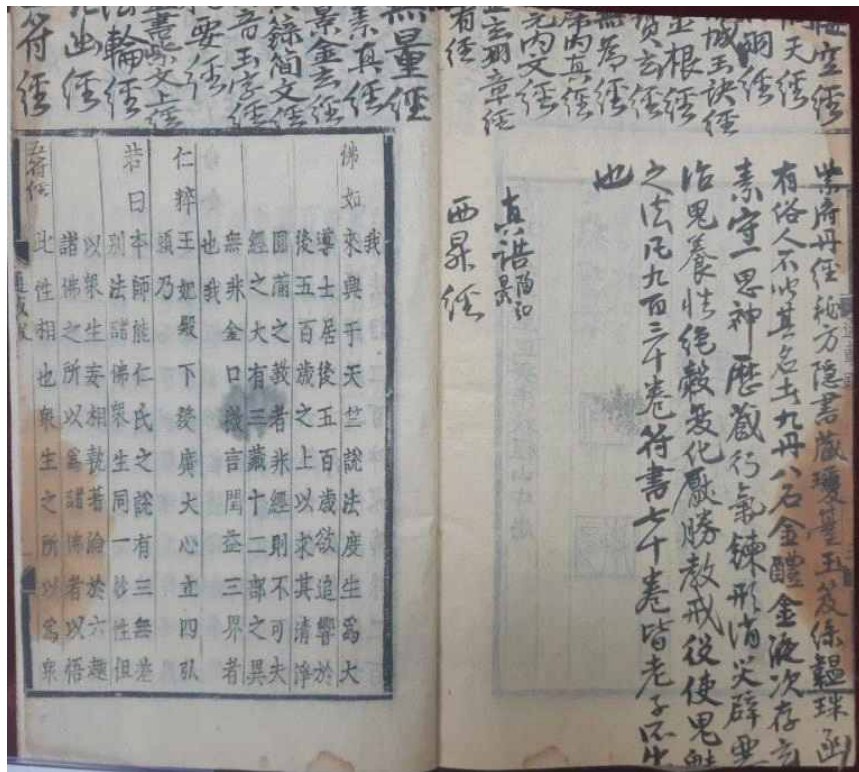 金根經
無為經
元內文經
有經
紫府丹經秘方隱書藏瓊笈玉笈絳韞珠函
有俗人不以其名去九丹八石金醴金液次存玄
素守一思神歷藏行氣鍊形消災辟惡
治鬼養性絕穀變化厭勝教戒役使鬼魅
之法凡九百三十卷符書七十卷皆老子所出
也
真誥
西昇經
無量經
素真經
景金玄經
籙簡文經
音玉字經
要經
書紫文上經
法輪經
出經
符經
我
佛如來興于天竺說法度生爲大
導士居後五百歲欲追響於
後五百歲之上以求其清淨
圓滿之教者非經則不可夫
經之大有三藏十二部之異
無非金口微言閏益三界者
也我
仁粹王妃殿下發廣大心立四弘
願乃
若曰本師能仁氏之說有三無差
別法諸佛衆生同一妙性但
以衆生妄相執著淪於六趣
諸佛之所以爲諸佛者以悟
此性相也衆生之所以爲衆
五符經